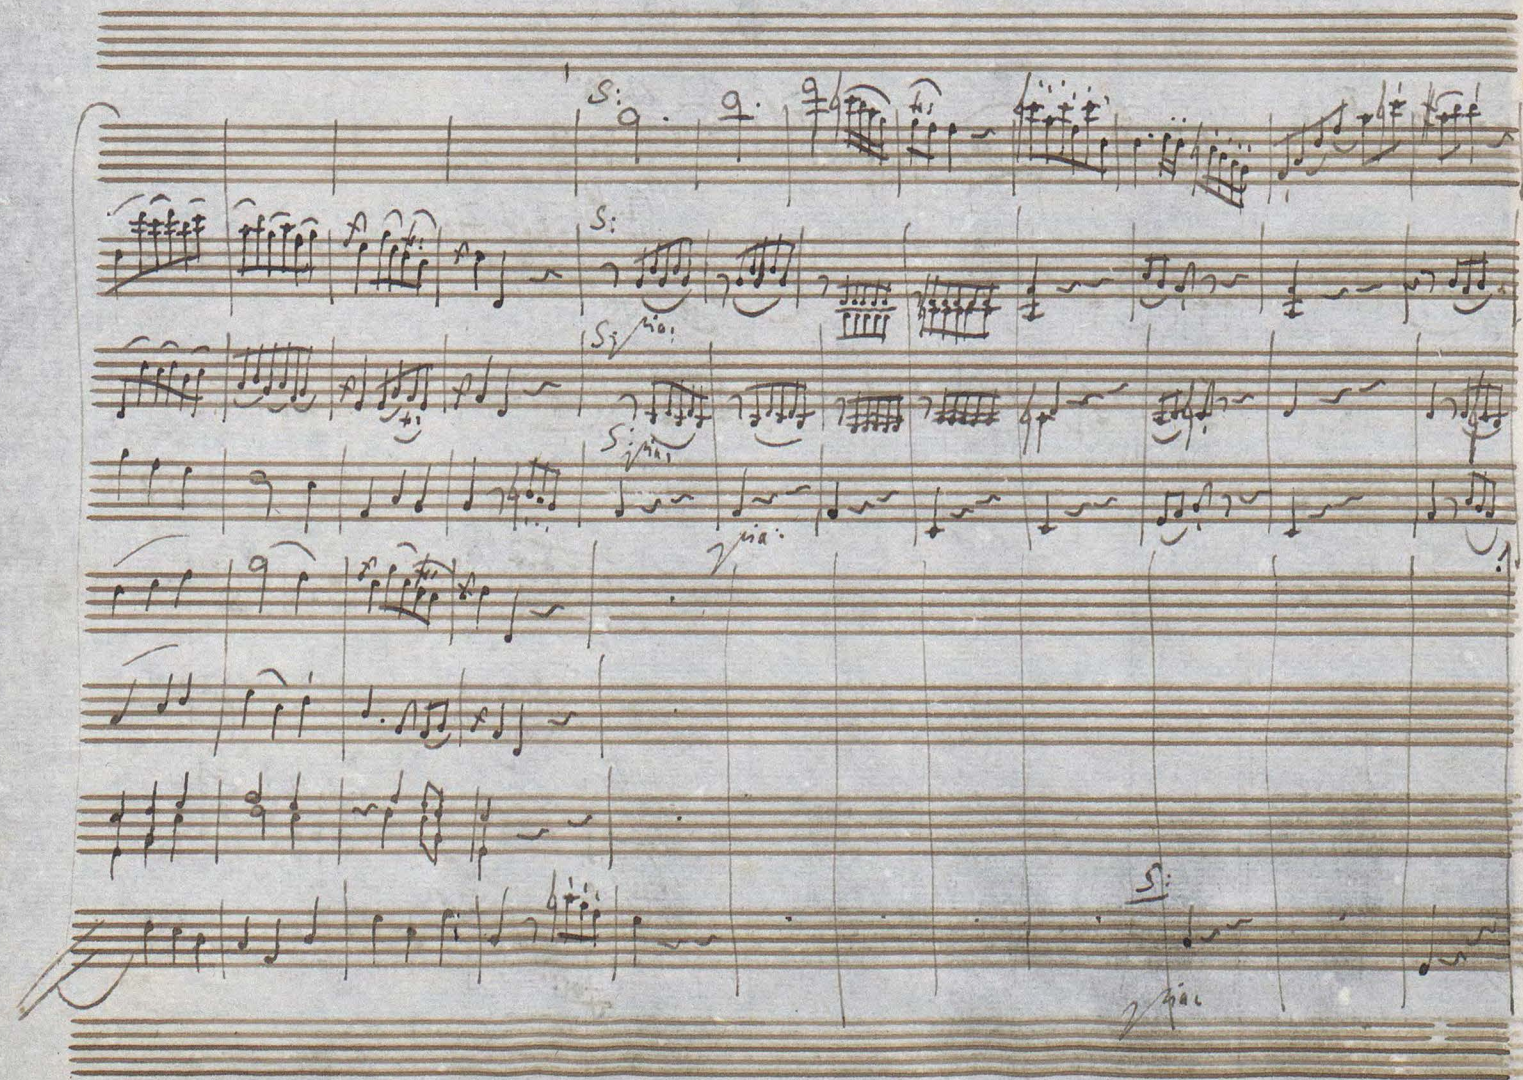 S:
S:
S: pia:
S: pia:
pia:
S:
pia: